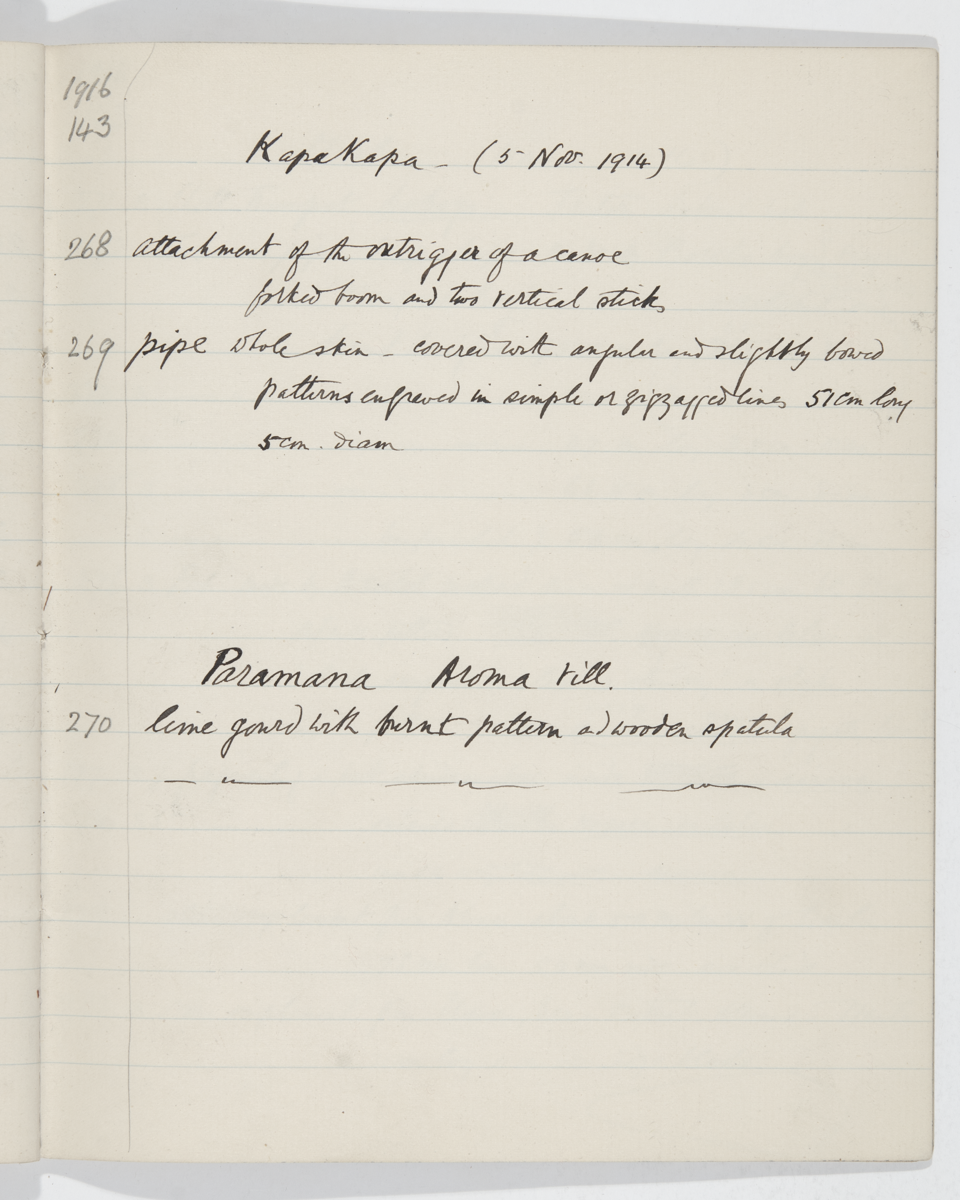 1916
143
KapaKapa - (5 Nov. 1914)
268 attachment of the outrigger of a canoe
forked boom and two vertical sticks
269 pipe whole skin - covered with angular and slightly bowed
patterns engraved in simple or zigzagged lines 51cm long
5cm. diam
Paramana Aroma vill.
270 lime gourd with burnt pattern and wooden spatula